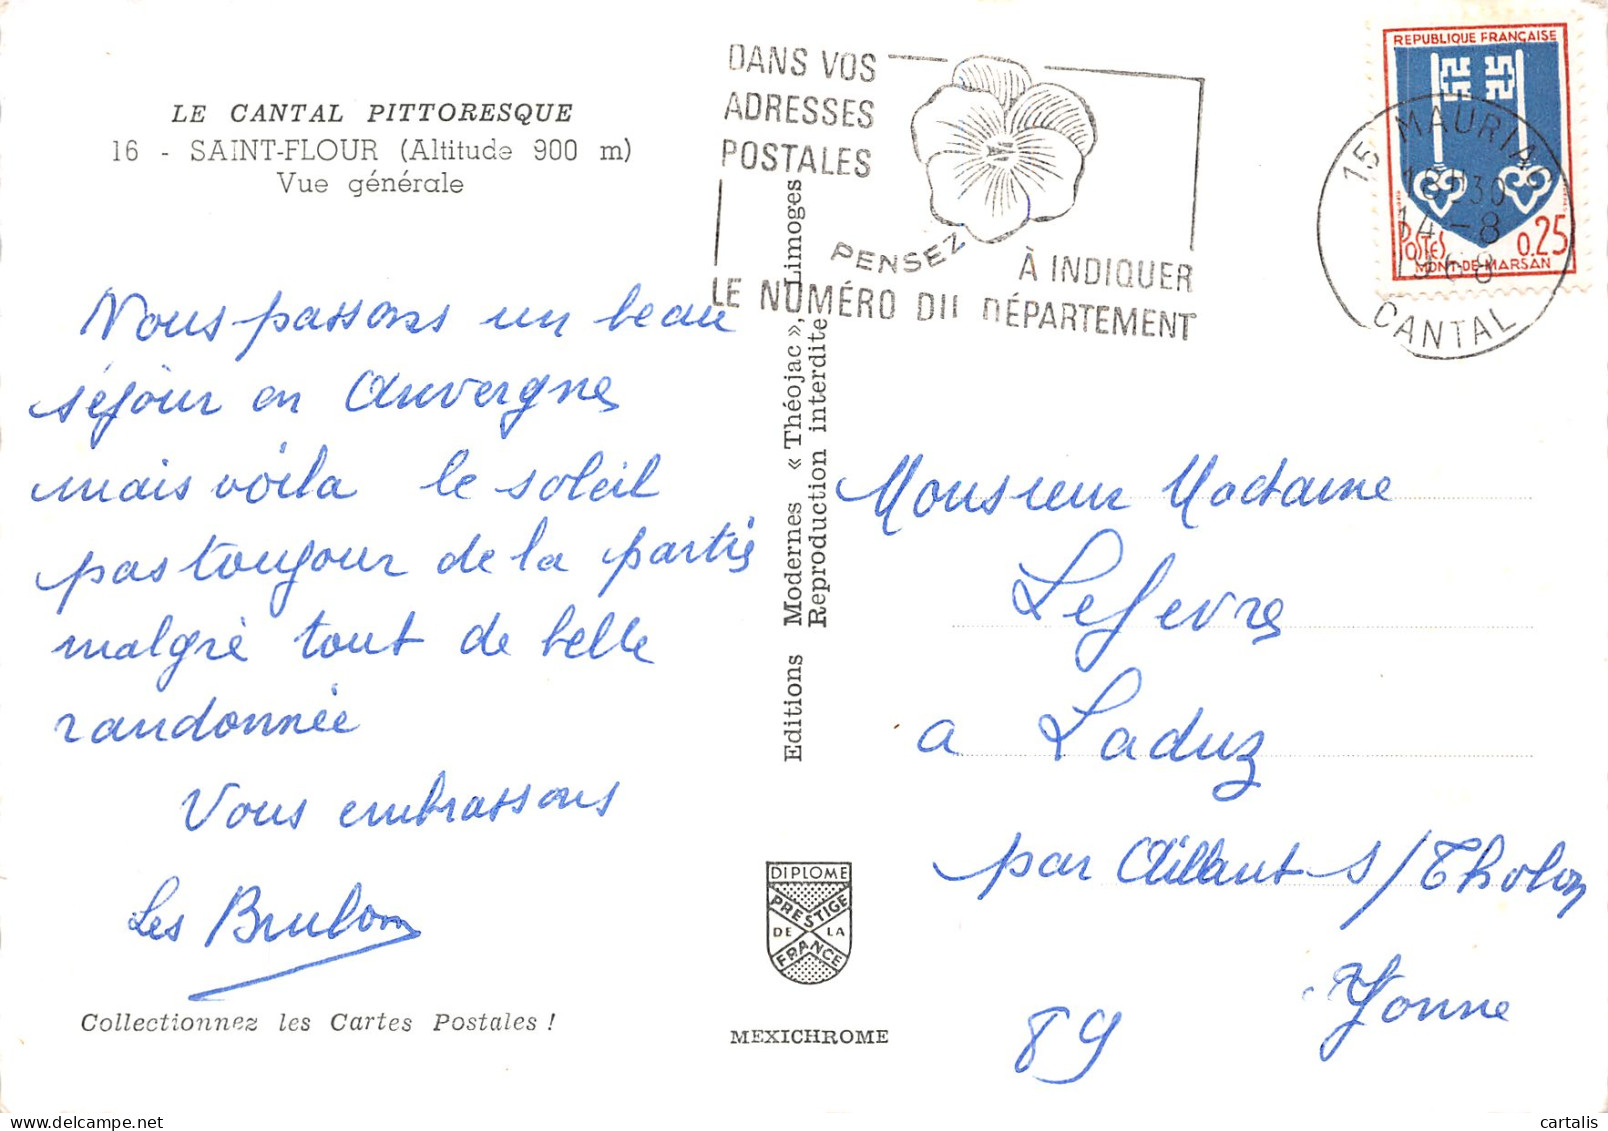 LE CANTAL PITTORESQUE
16 - SAINT-FLOUR (Altitude 900 m)
Vue générale
Nous passons un beau
séjour en Auvergne
mais voila le soleil
pas toujour de la partie
malgré tout de belle
randonnée
Vous embrassons
Les Brulon
Collectionnez les Cartes Postales !
Editions Modernes « Théojac », Limoges
Reproduction interdite
DIPLOME
PRESTIGE
DE LA
FRANCE
MEXICHROME
DANS VOS
ADRESSES
POSTALES
PENSEZ
À INDIQUER
LE NUMÉRO DU DÉPARTEMENT
REPUBLIQUE FRANÇAISE
POSTES 0.25
MONT-DE-MARSAN
15 MAURIAC
18H30
14-8
1968
CANTAL
Monsieur Madame
Lefevre
a Laduz
par Aillant s/Tholon
Yonne
89
cartalis